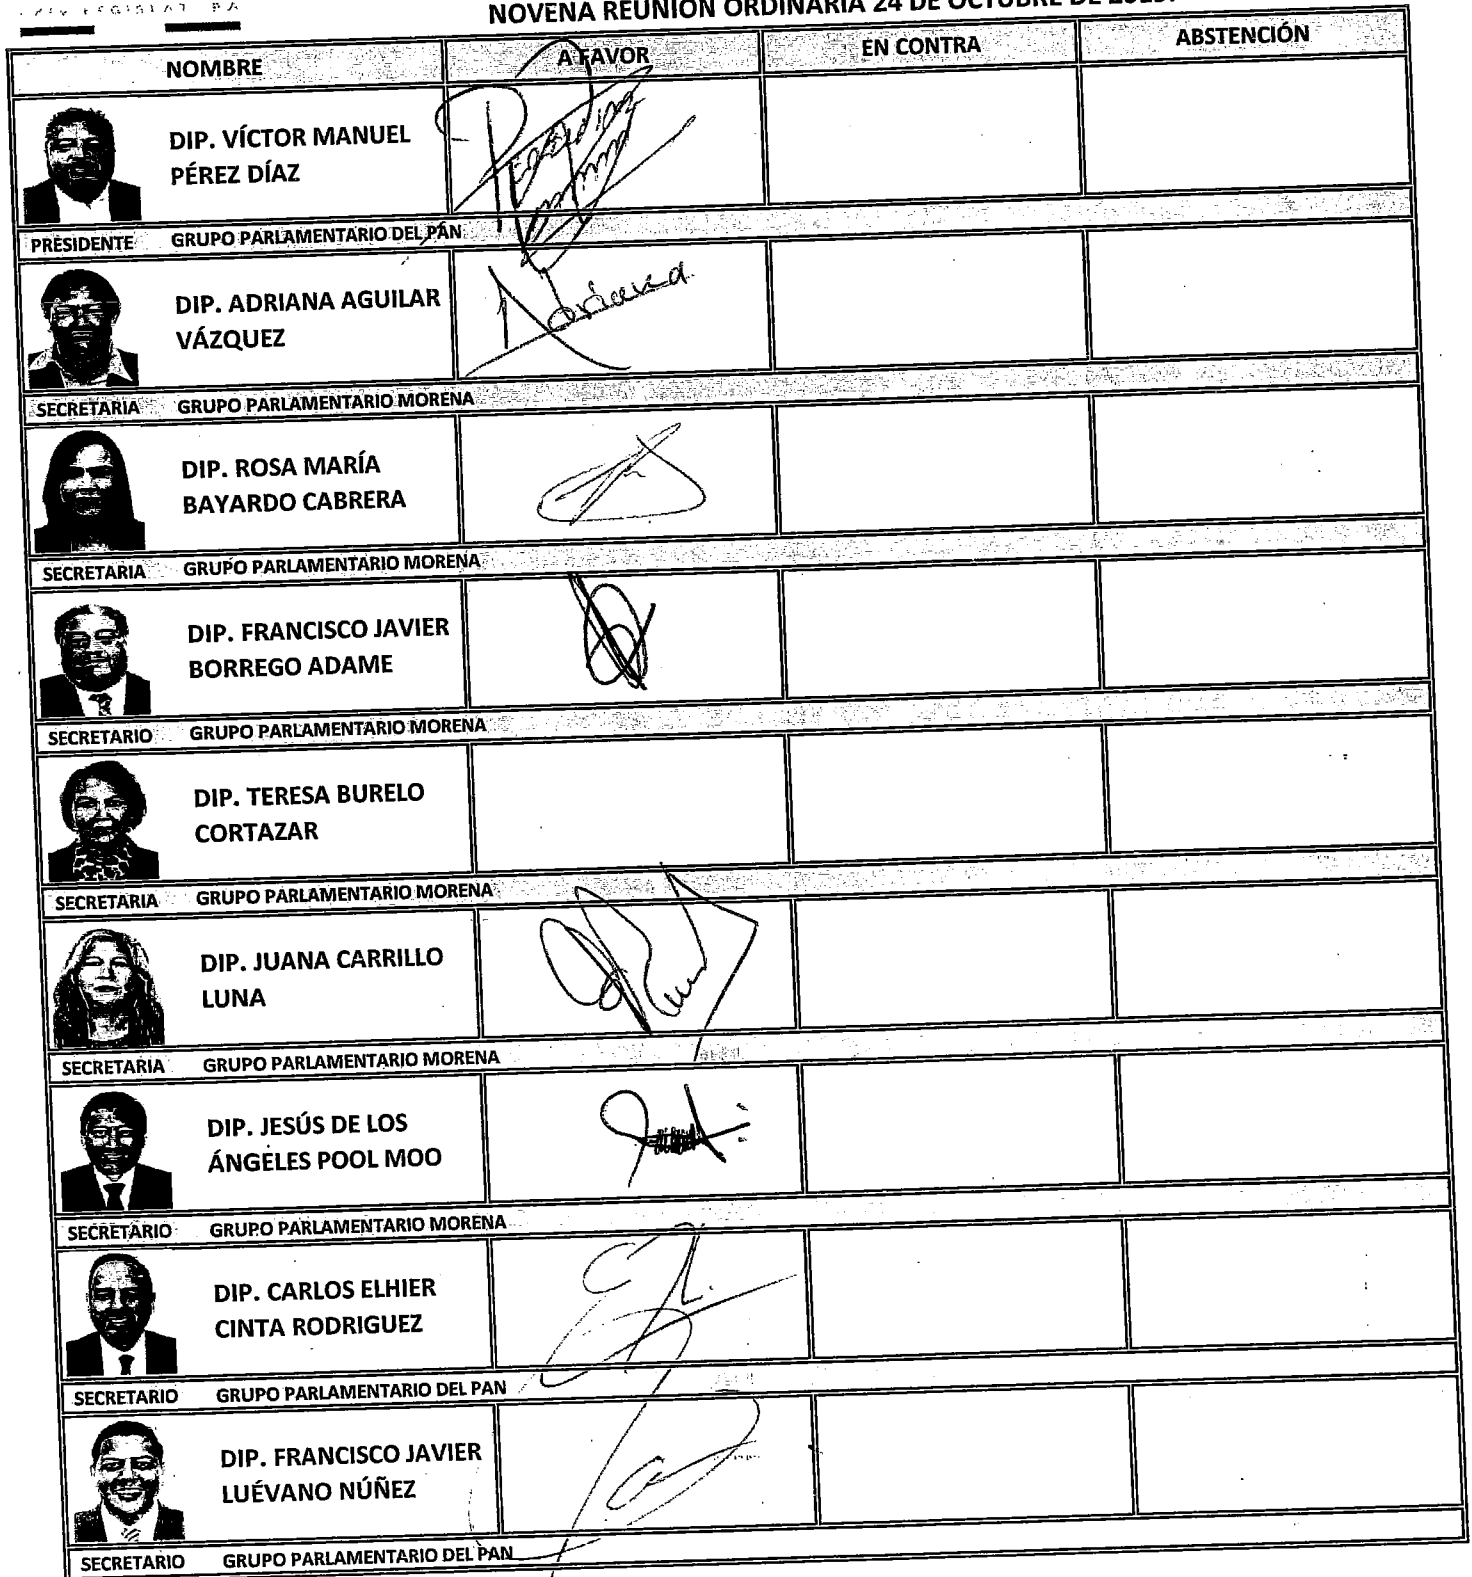 NOVENA REUNIÓN ORDINARIA 24 DE OCTUBRE DE
NOMBRE A FAVOR EN CONTRA ABSTENCIÓN
DIP. VÍCTOR MANUEL
PÉREZ DÍAZ
PRESIDENTE GRUPO PARLAMENTARIO DEL PAN
DIP. ADRIANA AGUILAR
VÁZQUEZ
Adriana
SECRETARIA GRUPO PARLAMENTARIO MORENA
DIP. ROSA MARÍA
BAYARDO CABRERA
SECRETARIA GRUPO PARLAMENTARIO MORENA
DIP. FRANCISCO JAVIER
BORREGO ADAME
SECRETARIO GRUPO PARLAMENTARIO MORENA
DIP. TERESA BURELO
CORTAZAR
SECRETARIA GRUPO PARLAMENTARIO MORENA
DIP. JUANA CARRILLO
LUNA
SECRETARIA GRUPO PARLAMENTARIO MORENA
DIP. JESÚS DE LOS
ÁNGELES POOL MOO
SECRETARIO GRUPO PARLAMENTARIO MORENA
DIP. CARLOS ELHIER
CINTA RODRIGUEZ
SECRETARIO GRUPO PARLAMENTARIO DEL PAN
DIP. FRANCISCO JAVIER
LUÉVANO NÚÑEZ
SECRETARIO GRUPO PARLAMENTARIO DEL PAN